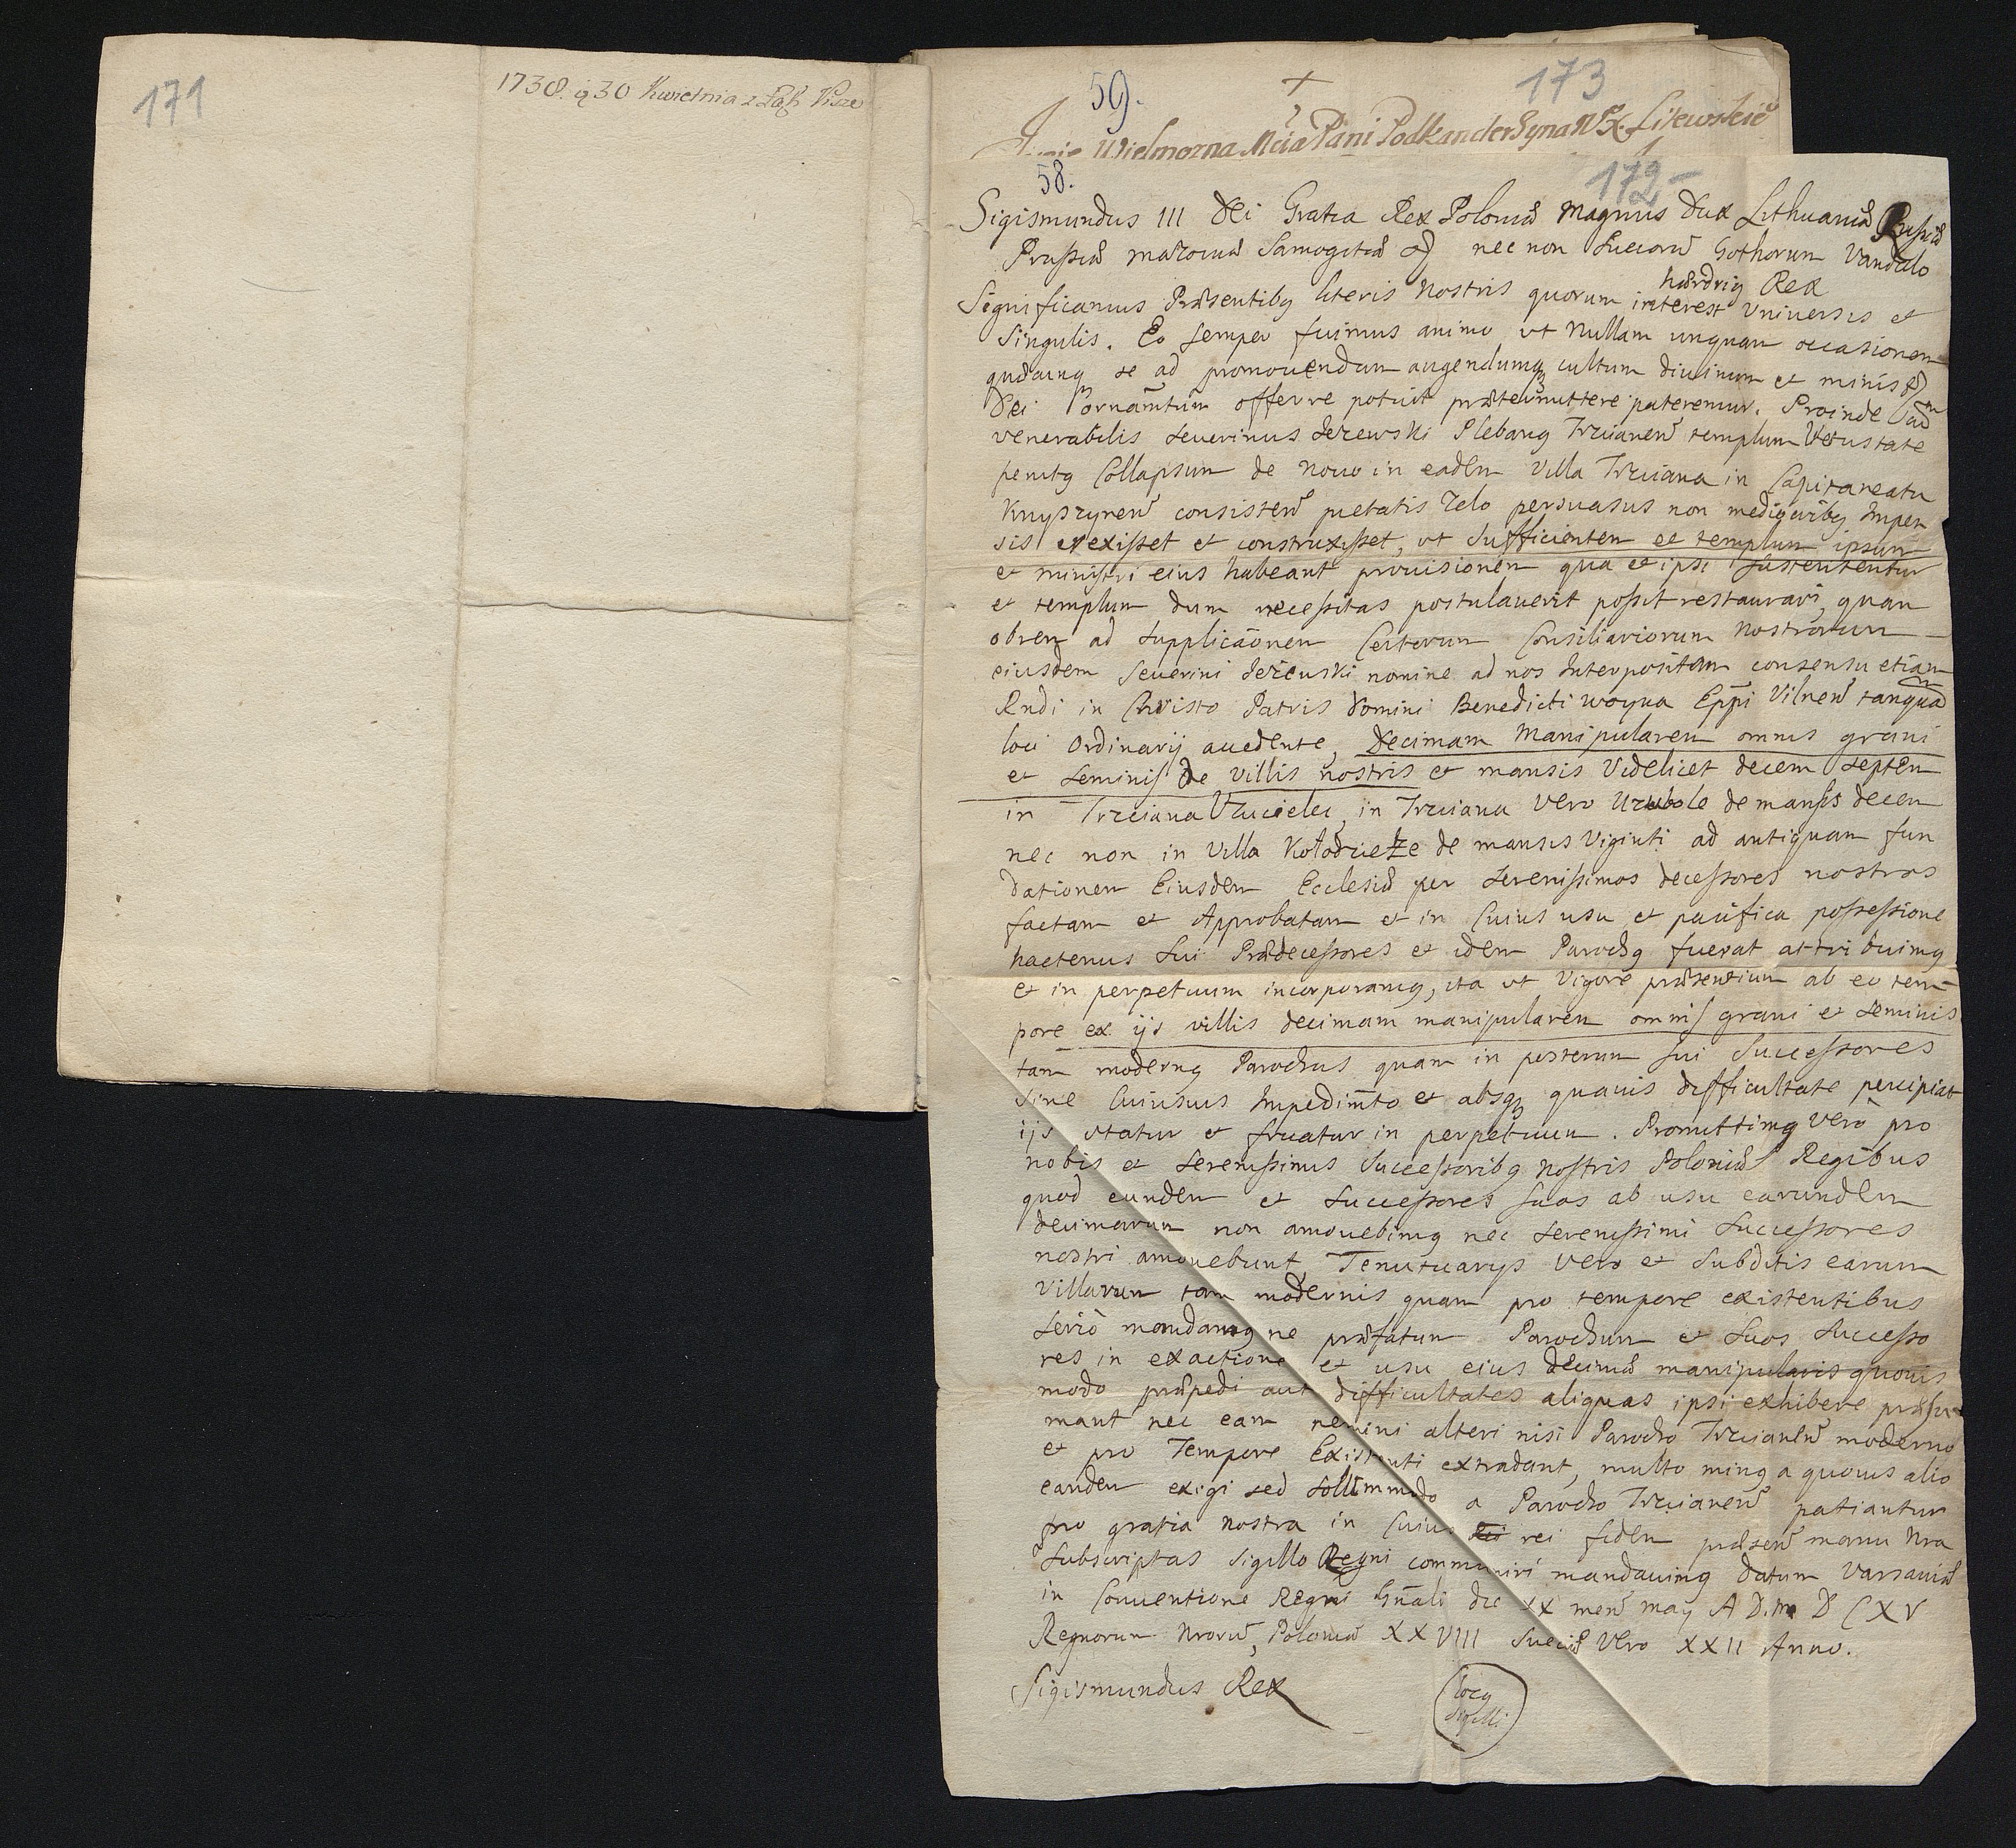 171
1738. 30 Kwietnia z
59.
173
Wielmozna Mcia Pani Podkanclerzyna W X Litewskie
58.
172
Sigismundus III Dei Gratia Rex Poloniæ Magnus Dux Lithuaniæ Russiæ
Prussiæ Mazouiæ Samogitiæ nec non Suecorū Gothorum Vandalo
hærdrig Rex
Significamus Præsentibq literis Nostris quorum interest Vniversis et
Singulis. Eo semper fuimus animo vt Nullam unquam occasionem
se ad promouendum augendumq cultum diuinum et
Dei ornamtum offerre potuit prætermittere pateremur. Proinde
venerabilis Seuerinus Jezewski Plebang Trzcianen templum Vetustate
penitq Collapsum de nouo in eadem Villa Trzciana in Capitaneatu
Knyszynen consisten pietatis zelo persuasus non mediocribq Impen
sis erexisset et construxisset, vt Sufficientem et templum ipsum
et ministri eius habeant prouisionem qua et ipsi sustententur
et templum dum necessitas postulauerit possit restaurari, quam
obrem ad Supplicāonem Certorum Consiliariorum Nostrorum
eiusdem Seuerini Jezewski nomine ad nos Interpositam consensu etiam
Rndi in Christo Patris Domini Benedicti Woyna Eppi Vilnen tanquā
loci Ordinarij accedente, Decimam Manipularem omnis grani
et Seminis de villis nostris et mansis Videlicet decem septem
in Trzciana, in Trzciana Vero de mansis decem
nec non in Villa Kołodzieże de mansis Viginti ad antiquam fun
dationem Eiusdem Ecclesiæ per Serenissimos decessores nostros
factam et Approbatam et in Cuius usu et pacifica possessione
hactenus Sui Prædecessores et idem Parochq fuerat attribuimq
et in perpetuum incorporamq, ita vt Vigore præsentium ab eo tem
pore ex ijs villis decimam manipularem omnis grani et Seminis
tam modernq Parochus quam in posterum sui Successores
Sine Cuiusuis Impedimto et absq quauis difficultate percipiat
ijs vtatur et fruatur in perpetuum. Promittimq Vero pro
nobis et Serenissimis Successoribq Nostris Poloniæ Regibus
quod eundem et Successores suos ab usu earundem
decimarum non amouebimq nec Serenissimi Successores
nostri amouebunt, Tenutuarijs Vero et Subditis earum
Villarum tam modernis quam pro tempore existentibus
Serio mandamq ne præfatum Parochum et Suos Successo
res in exactione et usu eius decimæ manipularis quouis
modo præpedi aut difficultates aliquas ipsi exhibere præsu
mant nec eam nemini alteri nisi Parocho Trzcianen moderno
et pro Tempore Existenti extradant, multo minq a quouis alio
eandem exigi sed sollummodo a Parocho Trzcianen patiantur
pro gratia nostra in Cuius rei fidem præsen manu Nra
Subscriptas Sigillo Regni communiri mandauimq Datum Varsauiæ
in Conuentione Regni Gnali die XX men May A D. M D C X V
Regnorum Nrorū, Poloniæ XXVIII Sueciæ Vero XXII Anno.
Sigismundus Rex
locq
Sigilli